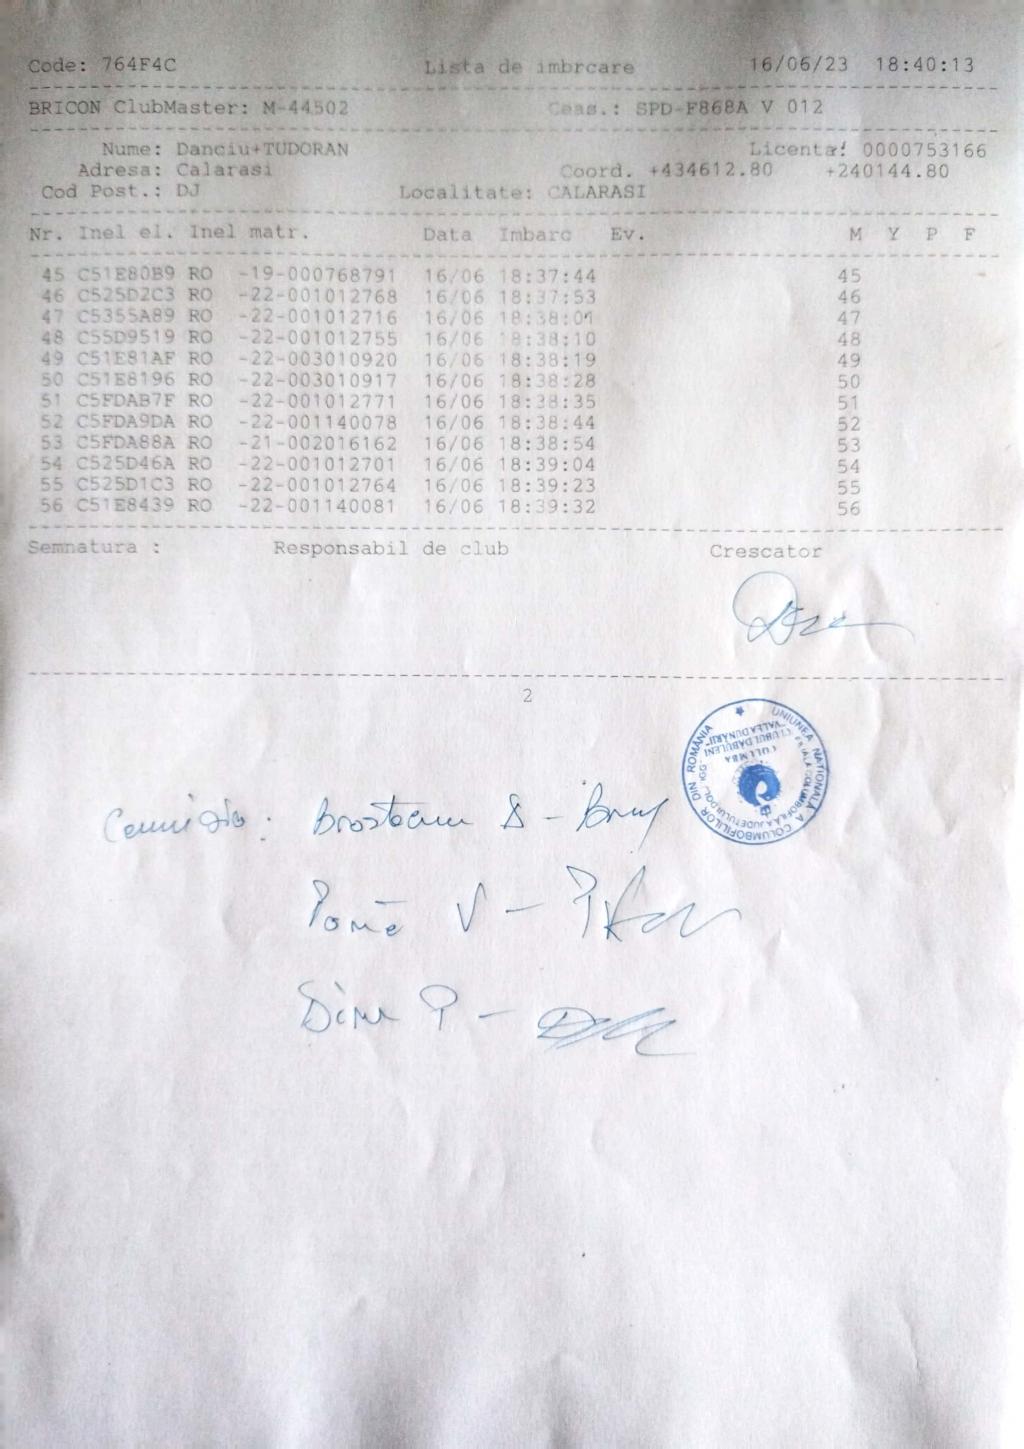 Code: 764F4C Lista de imbrcare 16/06/23 18:40:13
BRICON ClubMaster: M-44502 Ceas.: SPD-F868A V 012
Nume: Danciu+TUDORAN Licenta: 0000753166
Adresa: Calarasi Coord. +434612.80 +240144.80
Cod Post.: DJ Localitate: CALARASI
Nr. Inel el. Inel matr. Data Imbarc Ev. M Y P F
45 C51E80B9 RO -19-000768791 16/06 18:37:44 45
46 C525D2C3 RO -22-001012768 16/06 18:37:53 46
47 C5355A89 RO -22-001012716 16/06 18:38:01 47
48 C55D9519 RO -22-001012755 16/06 18:38:10 48
49 C51E81AF RO -22-003010920 16/06 18:38:19 49
50 C51E8196 RO -22-003010917 16/06 18:38:28 50
51 C5FDAB7F RO -22-001012771 16/06 18:38:35 51
52 C5FDA9DA RO -22-001140078 16/06 18:38:44 52
53 C5FDA88A RO -21-002016162 16/06 18:38:54 53
54 C525D46A RO -22-001012701 16/06 18:39:04 54
55 C525D1C3 RO -22-001012764 16/06 18:39:23 55
56 C51E8439 RO -22-001140081 16/06 18:39:32 56
Semnatura : Responsabil de club Crescator
2
UNIUNEA NATIONALA A COLUMBOFILILOR DIN ROMÂNIA
FILIALA COLUMBOFILA JUDETULUI DOLJ
CLUBUL DABULENI
"VALEA DUNARII"
COLUMBA
Comisia:
V -
P -